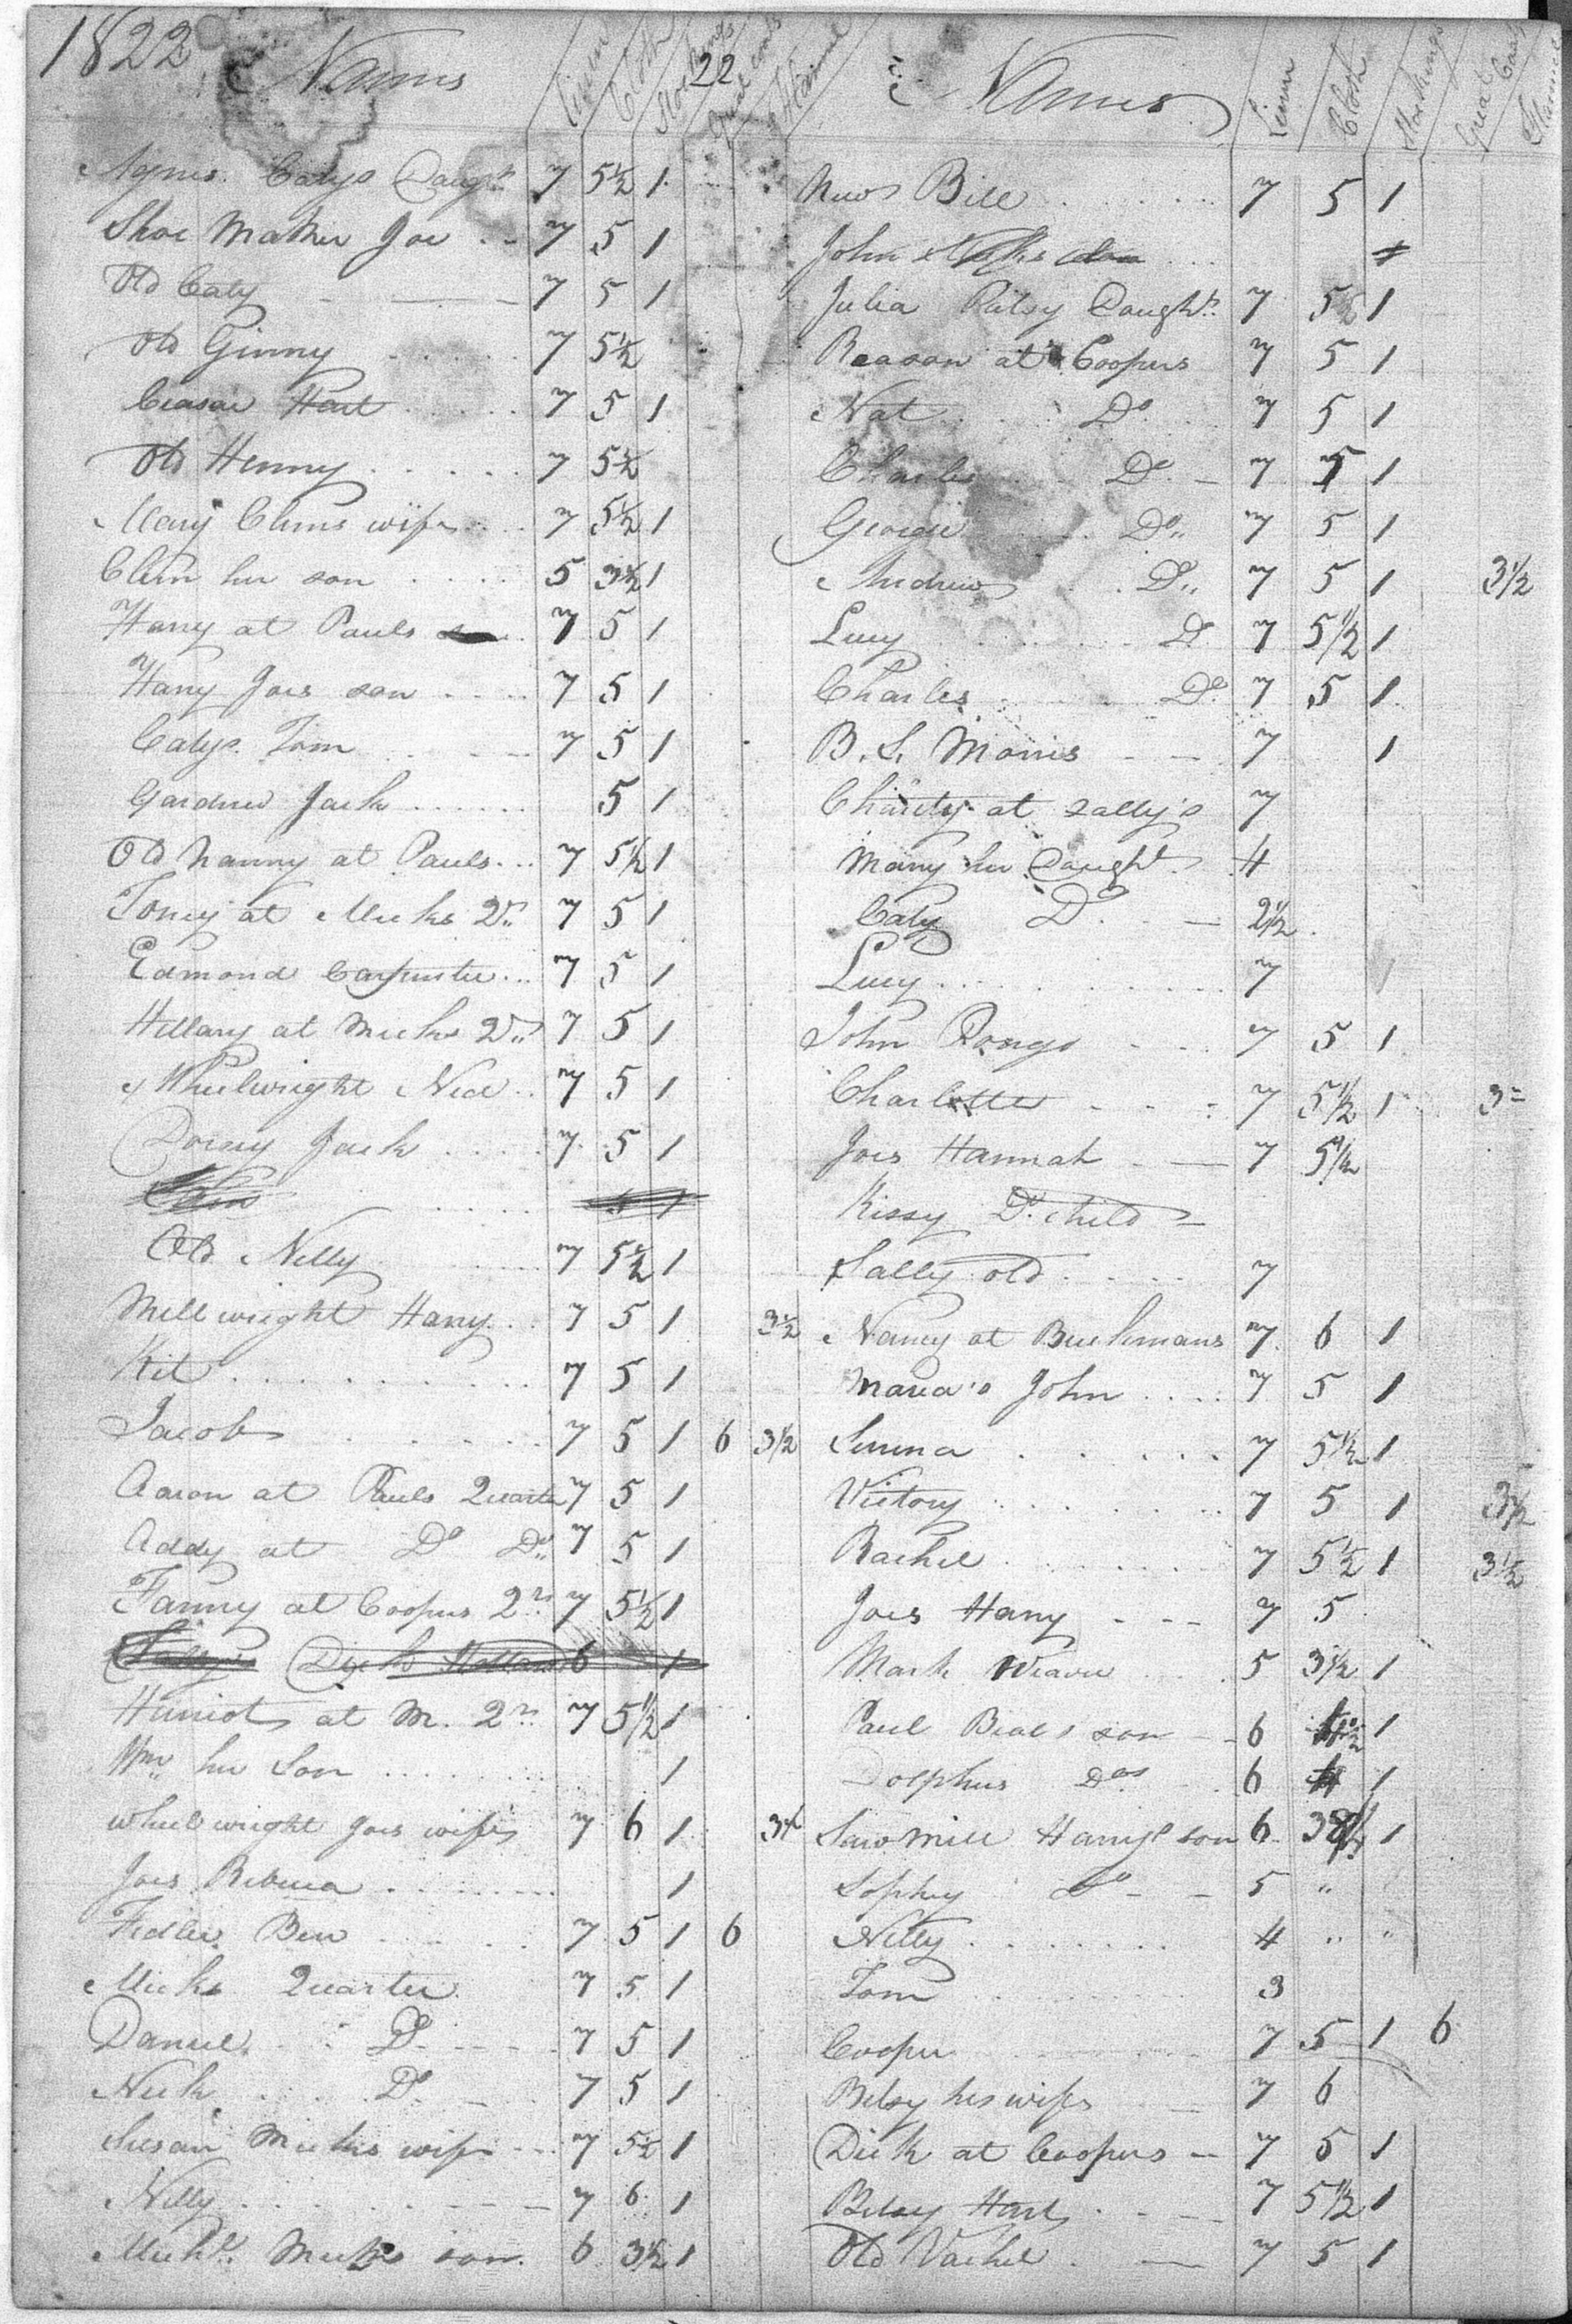 1822 Names Linen Cloth Stockings Great Coats Flannel
22
Agnes Catys Daught. 7 5½ 1
Shoe Maker Joe 7 5 1
Old Caty 7 5 1
Old Ginny 7 5½
Ceasar Hart 7 5 1
Old Henny 7 5½
Mary Clems wife 7 5½ 1
Clem her son 5 3½ 1
Harry at Pauls 7 5 1
Harry Joes son 7 5 1
Catys Tom 7 5 1
Gardner Jack 5 1
Old Nanny at Pauls 7 5½ 1
Toney at Micks Qr. 7 5 1
Edmond Carpenter 7 5 1
Hillary at Micks Qr. 7 5 1
Wheelwright Ned 7 5 1
Dorsey Jack 7 5 1
Old Nelly 7 5½ 1
Millwright Harry 7 5 1 3½
Kit 7 5 1
Jacob 7 5 1 6 3½
Aaron at Pauls Quarter 7 5 1
Addy at Do Do 7 5 1
Fanny at Coopers Qr. 7 5½ 1
Dick 6 1
Harriot at M. Qr. 7 5½ 1
Wm her Son 1
Wheelwright Joes wife 7 6 1
Joes Rebecca 1
Fidler Ben 7 5 1 6
Micks Quarter 7 5 1
Daniel Do 7 5 1
Nick Do 7 5 1
Susan Micks wife 7 5½ 1
Nelly 7 6 1
Michl. Micks son 6 3½ 1
Names Linen Cloth Stockings Great Coats Flannel
Bill 7 5 1
John
Julia Patsy Daught. 7 5½ 1
Reason at Coopers 7 5 1
Nat Do 7 5 1
Charles Do 7 5 1
George Do 7 5 1
Andrew Do 7 5 1 3½
Lucy Do 7 5½ 1
Charles Do 7 5 1
B. S. Morris 7 1
Charity at Sally's 7
Mary her Daught. 4
Caty Do. 2½
Lucy 7
John 7 5 1
Charlotte 7 5½ 1 3
Joes Hannah 7 5½
Kissy Do. child
Sally old 7
Nancy at Buckmans 7 6 1
Maria's John 7 5 1
Serena 7 5½ 1
Victory 7 5 1 3½
Rachel 7 5½ 1 3½
Joes Harry 7 5
Mark Weaver 5 3½ 1
Paul son 6 1
Dolphus Do 6 1
Saw Mill Harrys son 6 1
Sophy Do 5 "
Netty 4 " "
Tom 3
Cooper 7 5 1 6
Betsy his wife 7 6
Dick at Coopers 7 5 1
Betsy Hart 7 5½ 1
Old Vachel 7 5 1